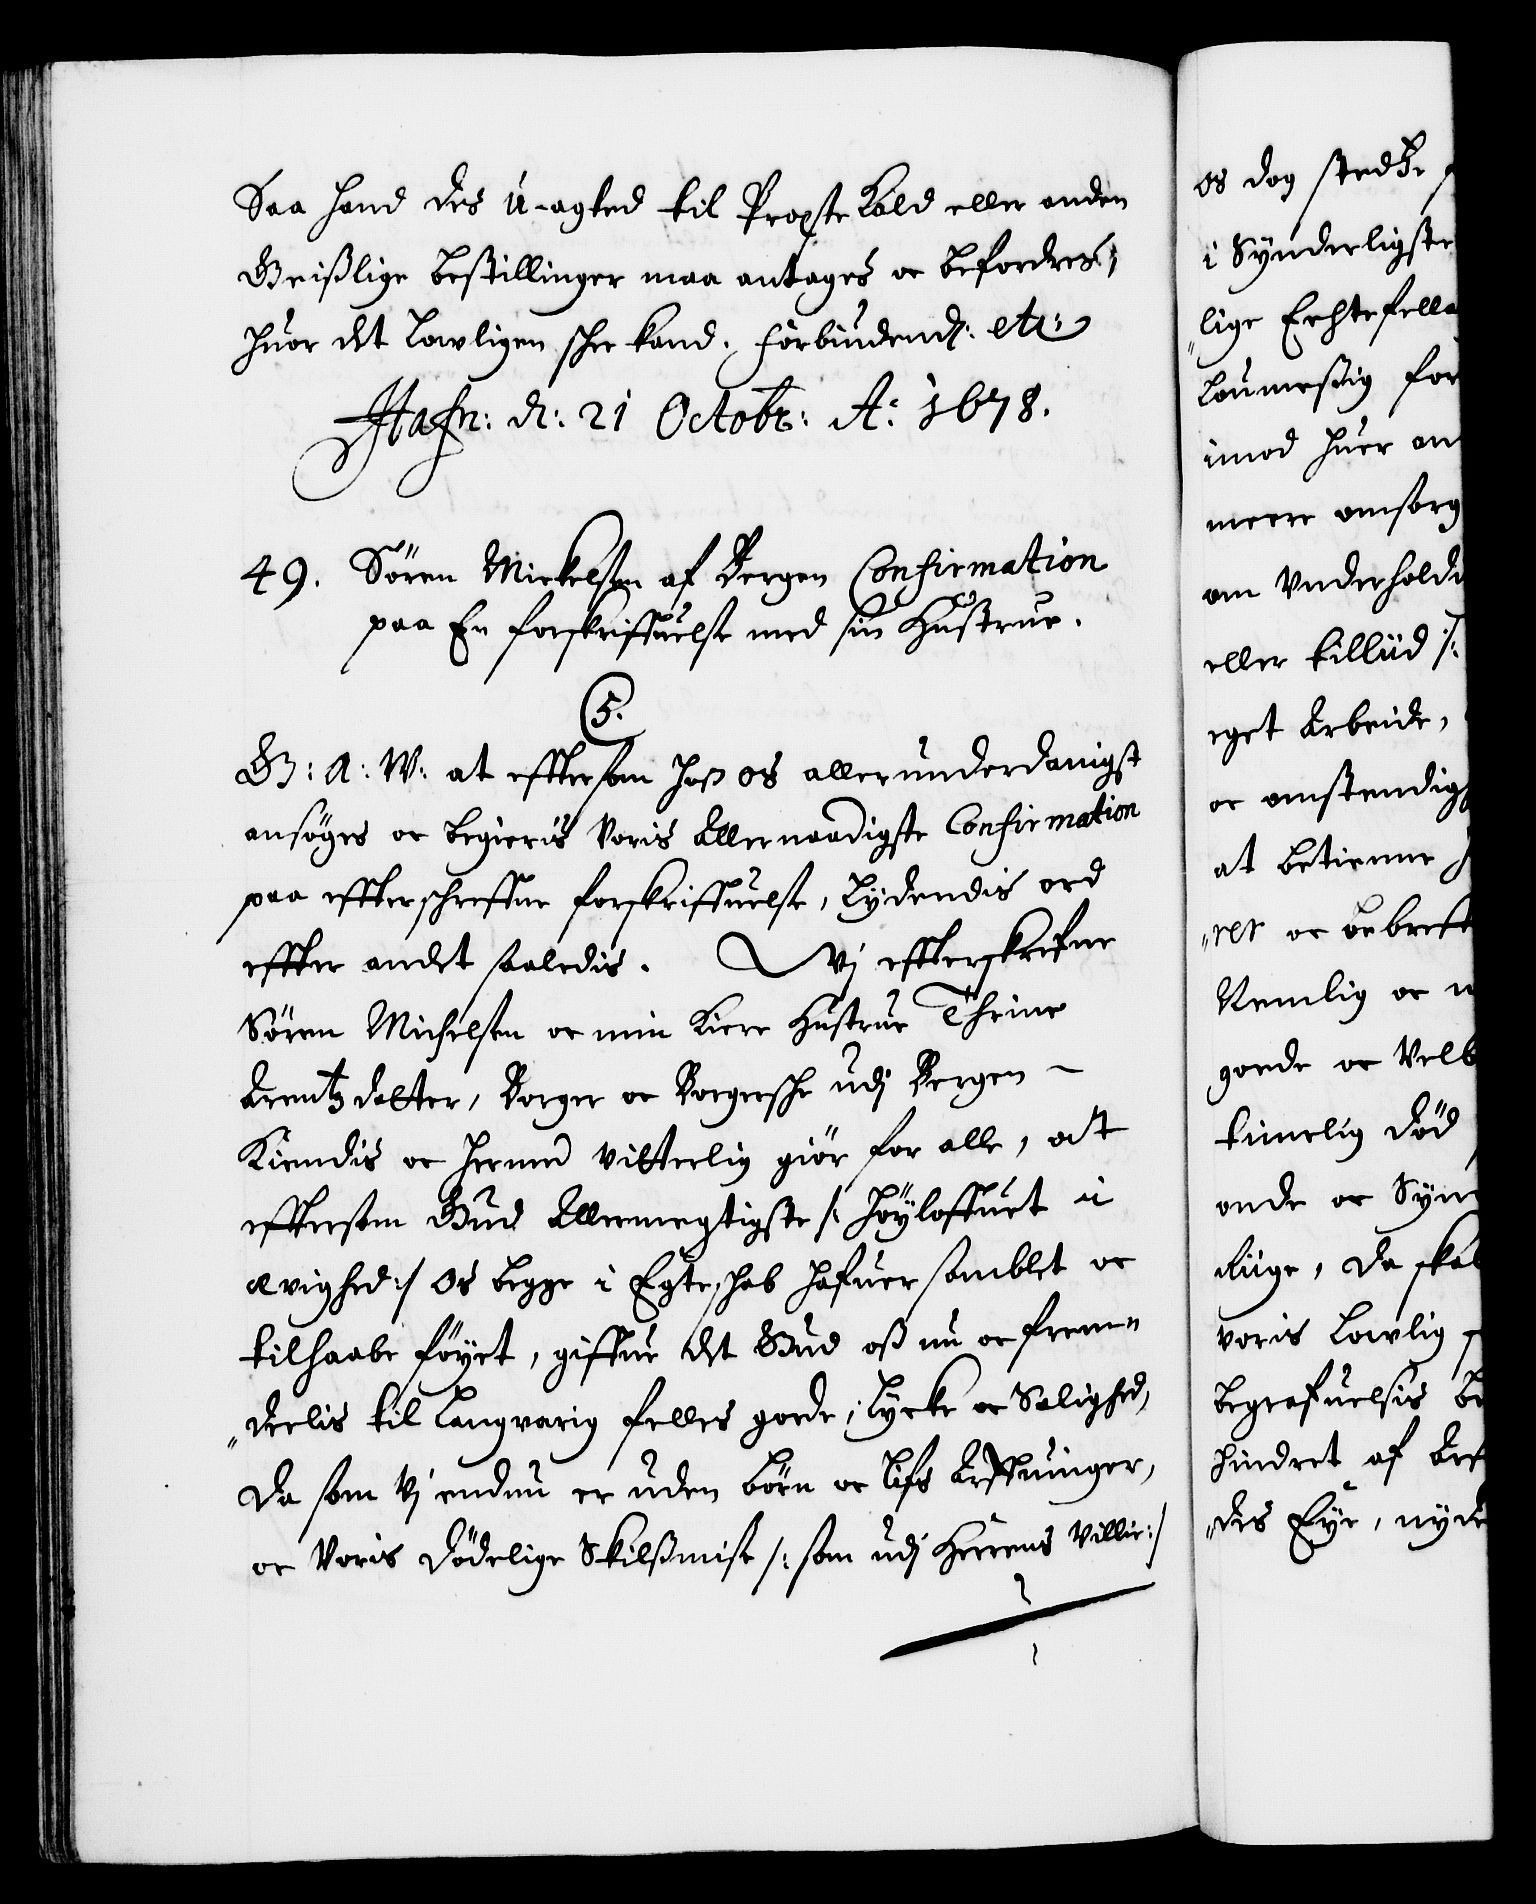 Saa hand des u-agted til Proste Kald eller anden
Geistlige bestillinger maa antages oc befordres,
huor det lowligen schee kand. forbiudend: etc:
Hafn: d: 21 Octobr: A: 1678.
49. Sören Mickelsen af Bergen Confirmation
paa En forskriffuelse med sin Hustrue.
C5.
G: A: W: at effter som hoß os allerunderdanigst
ansöges oc begieris voris Allernaadigste Confirmation
paa effterschreffne forskriffuelse, Lydendis ord
effter andet saaledis. Vj effterskrefne
Sören Michelsen oc min Kiere Hustrue Thrine
Arentz datter, Borger oc Borgersche udj Bergen
Kiendis oc hermed vitterlig giör for alle, at
efftersom Gud Allermegtigste /: höyloffuet i
ævighed:/ os begge i Egteschab hafuer samblet oc
tilhaabe föyet, giffue det Gud oß nu oc frem-
deelis til Langvarig felles gode, Lycke oc Salighed,
Da som Vj endnu er uden börn oc lifs Arffuinger,
oc Voris dödelige Skilßmise /: som udj Herrens Villie:/
os dog stedtze
i Synderligste
lige Echtefella
Loumeßig for
imod huer an
meere omsorg
om Vnderhold
eller tilliid /:
eget Arbeide,
oc omstendig
at betienne
rer oc bebreff
Nemlig oc
goede oc Velb
timelig död
ende oc Syn
liige, da skal
voris Lowlig
begrafuelsis be
hindret af Arf
des Eye, nyde